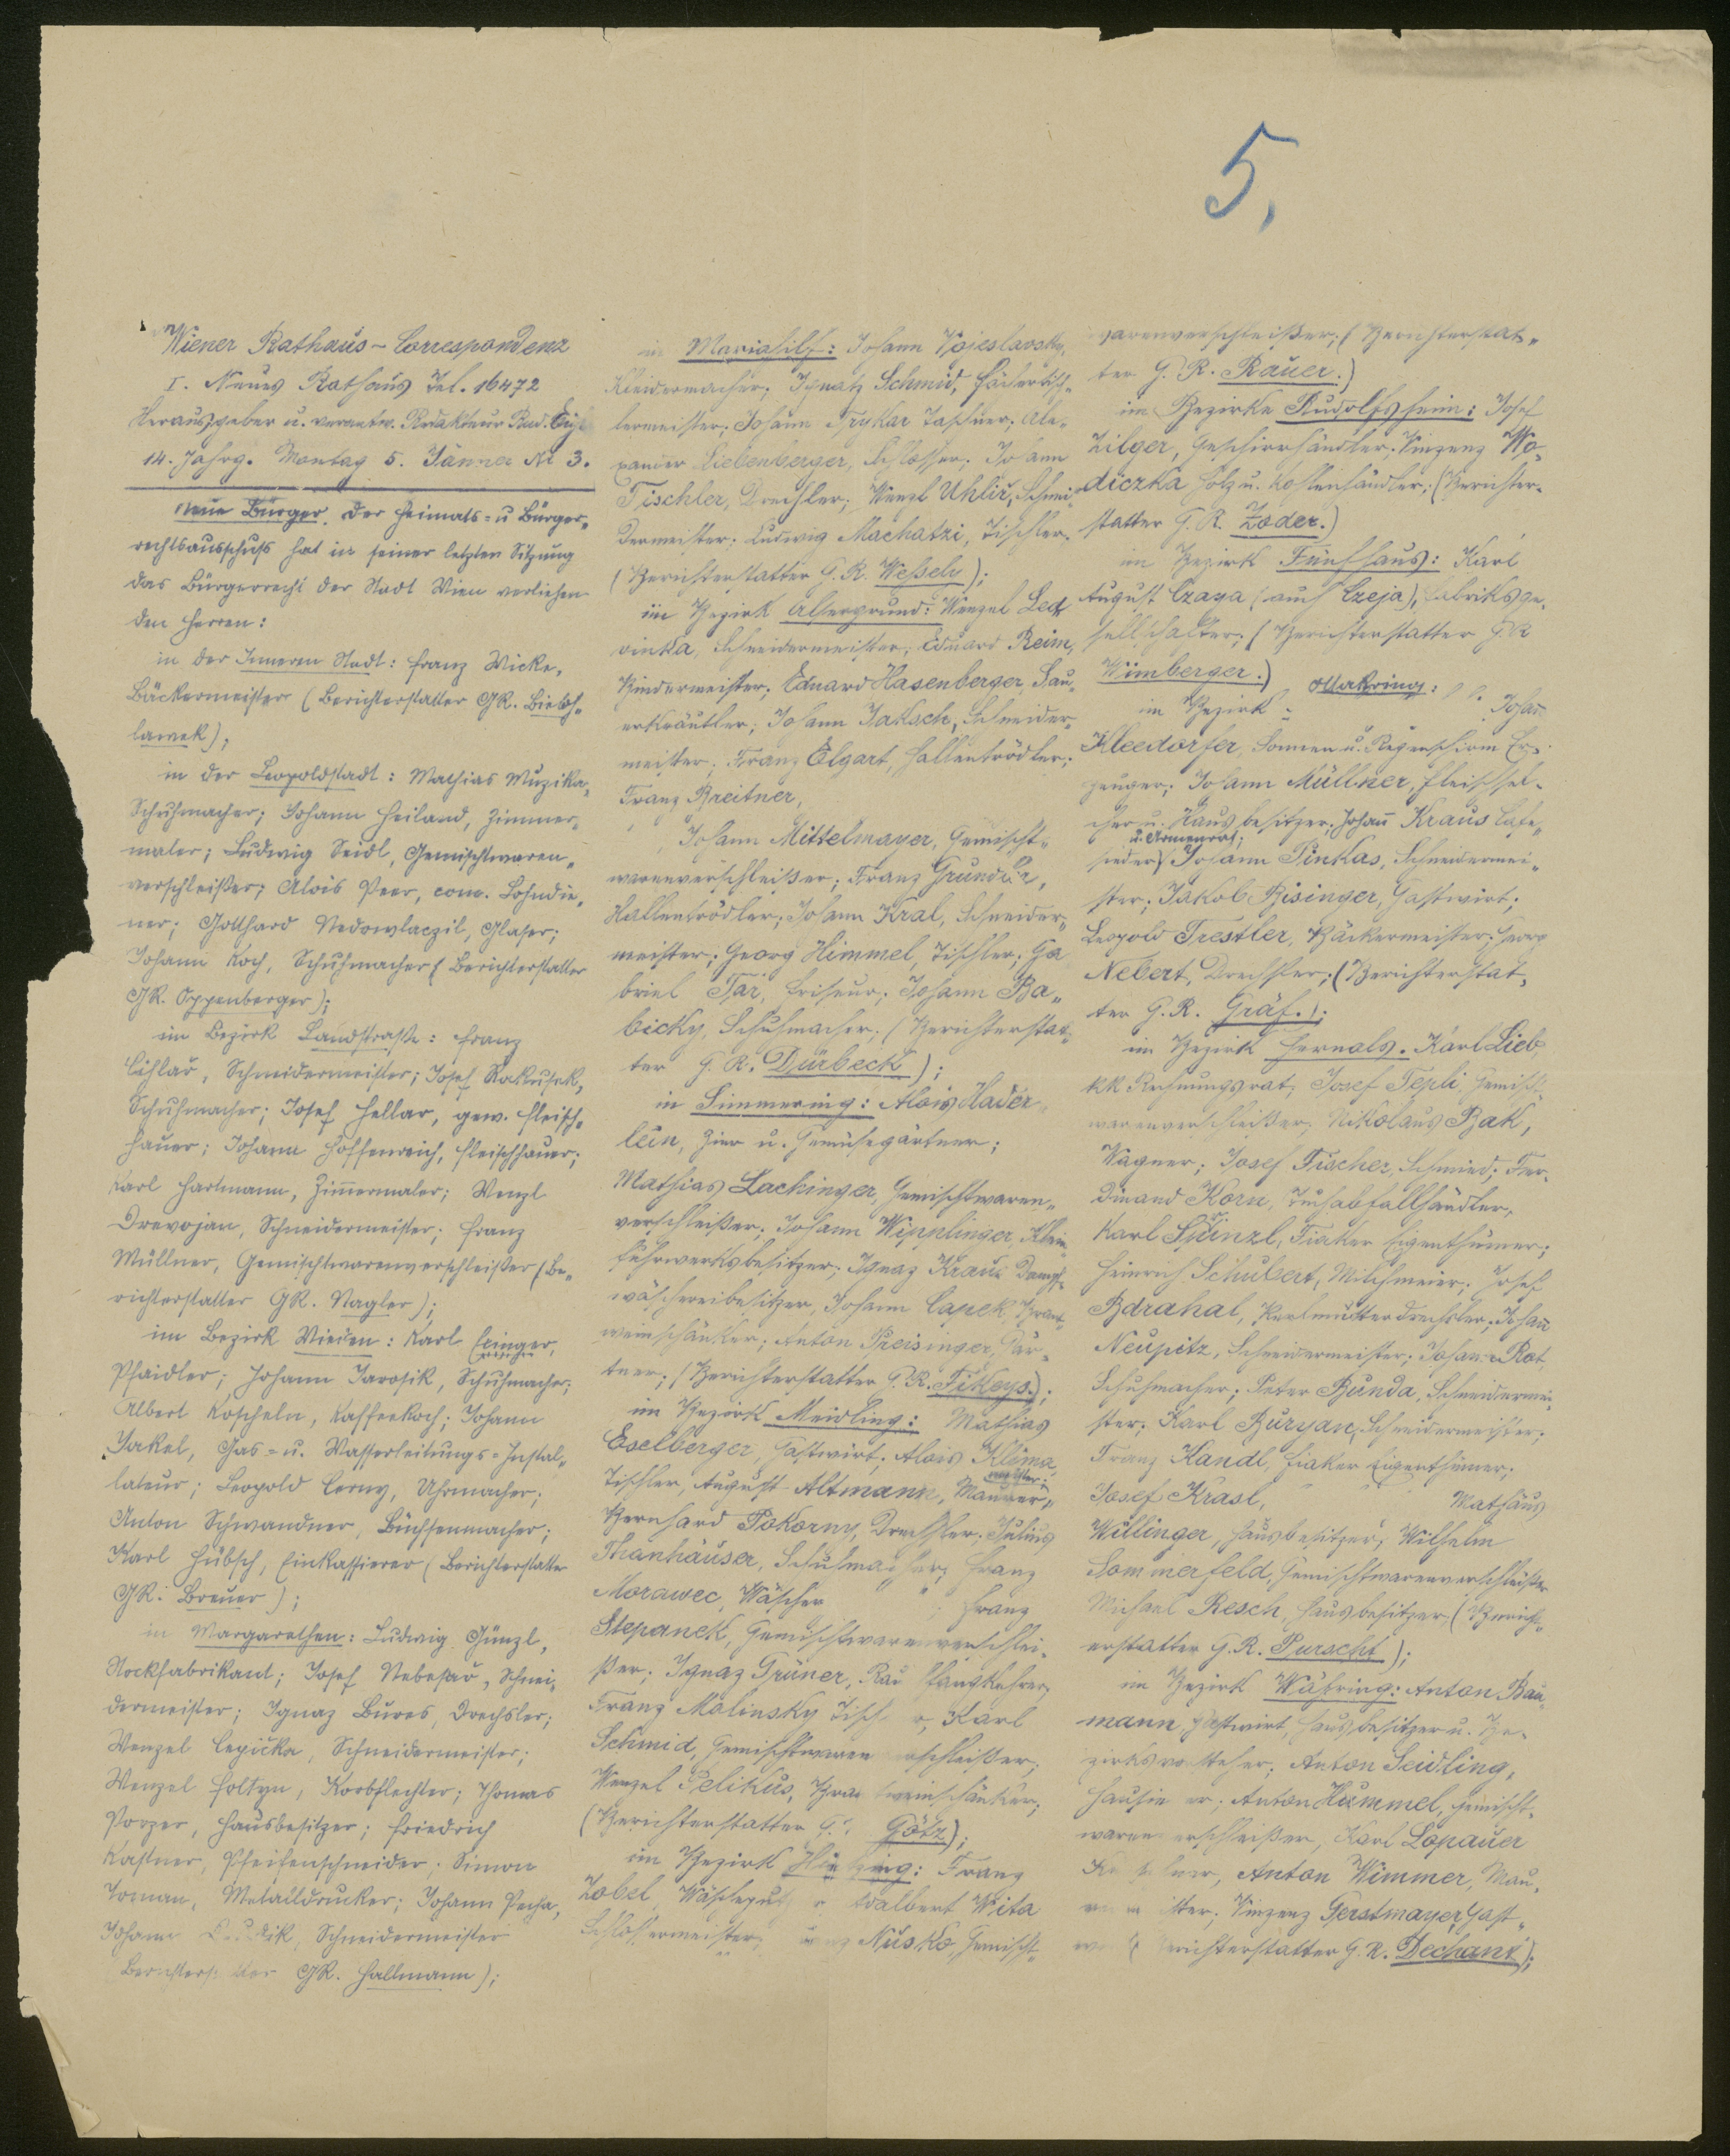 5,
Wiener Rathaus-Correspondenz
I. Neues Rathaus Tel. 16472
Herausgeber u. verantw. Redakteur Rud.
14. Jahrg. Montag 5. Jänner Nr 3.
Neue Bürger. Der Heimats- u Bürger„
rechtsausschuss hat in seiner letzten Sitzung
das Bürgerrecht der Stadt Wien verliehen
den Herren:
in der Inneren Stadt: Franz Wicke,
Bäckermeister (Berichterstatter GR. Bieloh„
lawek);
in der Leopoldstadt: Mathias Muzika,
Schuhmacher; Johann Heiland, Zimmer„
maler; Ludwig Seidl, Gemischtwaren„
verschleißer; Alois Peer, com. Lohndie„
ner; Gotthard Nedowlaczil, Glaser;
Johann Koch, Schuhmacher (Berichterstatter
GR. Oppenberger);
im Bezirk Landstraße: Franz
Cihlar, Schneidermeister; Josef Rakusek,
Schuhmacher; Josef Hellar, gew. Fleisch„
hauer; Johann Hoffenreich, Fleischhauer;
Karl Hartmann, Zimmermaler; Wenzl
Drevojan, Schneidermeister; Franz
Müllner, Gemischtwarenverschleißer (Be„
richterstatter GR. Nagler);
im Bezirk Wieden: Karl Exinger,
Pfaidler; Johann Jarosik, Schuhmacher;
Albert Koscheln, Kaffeekoch; Johann
Jakel, Gas- u. Wasserleitungs-Instal„
lateur; Leopold Cerny, Uhrmacher;
Anton Schwandner, Büchsenmacher;
Karl Hübsch, Einkassierer (Berichterstatter
GR. Breuer);
in Margarethen: Ludwig Günzl,
Stockfabrikant; Josef Nebesar, Schnei„
dermeister; Ignaz Bures, Drechsler;
Wenzel Cepicka, Schneidermeister;
Wenzel Holtyn, Korbflechter; Thomas
Porzer, Hausbesitzer; Friedrich
Kastner, Pfeifenschneider; Simon
Toman, Metalldrucker; Johann Pecha,
Johann Schneidermeister
GR. Hallmann);
in Mariahilf: Johann Vojeslavsky,
Kleidermacher; Ignatz Schmid, Fächertisch„
lermeister; Johann Trykar Taschner; Ale„
xander Liebenberger, Schlosser; Johann
Tischler, Drechsler; Wenzl Uhlir, Schnei„
dermeister; Ludwig Machatzi, Tischler.
(Berichterstatter G.R. Weßely);
im Bezirk Alsergrund: Wenzel Led„
vinka, Schneidermeister; Eduard Reim,
Bindermeister; Eduard Hasenberger, Sau„
erkräutler; Johann Jaksch, Schneider„
meister; Franz Elgart, Hallentrödler;
Franz Breitner,
Johann Mittelmayer, Gemischt„
warenverschleißer; Franz Grundler,
Hallentrödler; Johann Kral, Schneider„
meister; Georg Himmel, Tischler; Ga
briel Tar, Friseur; Johann Ba„
bicky, Schuhmacher; (Berichterstat„
ter G.R. Dürbeck);
in Simmering: Alois Hader
lein, Zier u. Gemüsegärtner;
Mathias Lackinger, Gemischtwaren„
verschleißer; Johann Wipplinger, Klein
fuhrwerksbesitzer; Ignaz Kraus Dampf„
wäschereibesitzer, Johann Capek, Brant„
weinschänker; Anton Preisinger, Gär„
tner; (Berichterstatter G.R. Fikeys.);
im Bezirk Meidling: Mathias
Eselberger, Gastwirt; Alois Klima,
Tischler, August Altmann, Maurer„
meister;
Bernhard Pokorny, Drechsler; Julius
Thanhäuser, Schuhmacher; Franz
Morawec, Wäscher ; Franz
Stepanek, Gemischtwarenverschlei„
ßer; Ignaz Grüner, Rauchfangkehrer
Franz Malinsky Tischler, Karl
Schmid, Gemischtwarenverschleißer;
Wenzel Pelikus, Brantweinschänker;
(Berichterstatter G.R. Götz);
im Bezirk Hietzing: Franz
Zobel, Wäscheputzer Adalbert Wita
Schlossermeister; Nusko, Gemischt„
warenverschleißer; (Berichterstat„
ter G.R. Rauer.)
im Bezirke Rudolfsheim: Josef
Zilger, Geschirrhändler; Vinzenz Wo„
diczka Holz u. Kohlenhändler; (Berichter„
statter G.R. Zoder.)
im Bezirk Fünfhaus: Karl
August Czaya (auch Czeja), Fabriksge„
sellschafter; (Berichterstatter GR
Wimberger.)
im Bezirk Ottakring: Johan
Kleedorfer, Sonnen u. Regenschirm Er„
zeuger; Johann Müllner, Fleischsel„
cher u. Hausbesitzer; Johann Kraus Cafe„
sieder u. Armenrat; Johann Pinkas, Schneidermei„
ster; Jakob Bisinger, Gastwirt;
Leopold Trestler, Bäckermeister; Georg
Nebert, Drechsler; (Berichterstat„
ter G.R. Gräf.);
im Bezirk Hernals. Karl Lieb,
kk Rechnungsrat; Josef Tepli, Gemischt„
warenverschleißer; Nikolaus Bak,
Wagner; Josef Fischer, Schmied; Fer„
dinand Korn, Tuchabfallhändler,
Karl Stinzl, Fiaker Eigenthümer;
Heinrich Schubert, Milchmeier; Josef
Bdrahal, Perlmutterdrechsler; Johann
Neupitz, Schneidermeister; Johann Rot,
Schuhmacher; Peter Bunda, Schneidermei„
ster; Karl Buryan, Schneidermeister;
Franz Kandl, Fiaker Eigenthümer;
Josef Krasl, Mathäus
Willinger, Hausbesitzer; Wilhelm
Sommerfeld, Gemischtwarenverschleißer
Michael Resch, Hausbesitzer; (Bericht„
erstatter G.R. Purscht);
im Bezirk Währing: Anton Bau„
mann Gastwirt, Hausbesitzer u. Be„
zirksvorsteher; Anton Seidling,
Hausierer; Anton Hummel, Gemischt„
warenverschleißer, Karl Lopauer
Anton Wimmer, Mau„
rermeister; Vinzenz Gerstmayer, Gast„
wirt (Berichterstatter G.R. Dechant);